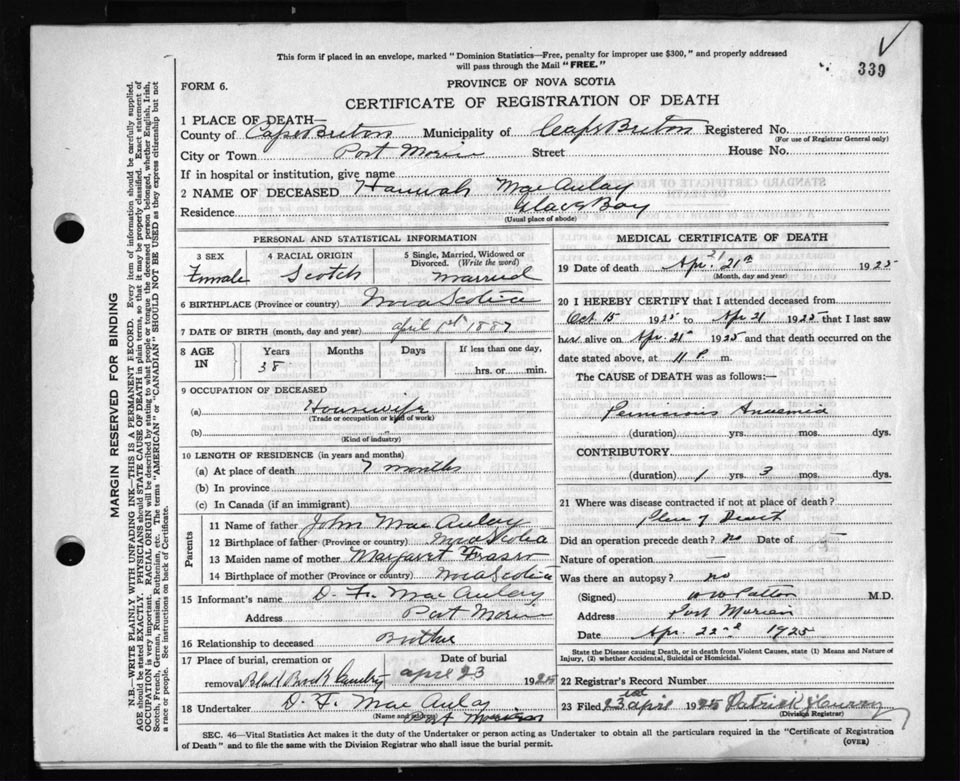 This form if placed in an envelope, marked "Dominion Statistics—Free, penalty for improper use $300," and properly addressed
will pass through the Mail "FREE."
339
FORM 6.
PROVINCE OF NOVA SCOTIA
CERTIFICATE OF REGISTRATION OF DEATH
1 PLACE OF DEATH—
County of Cape Breton Municipality of Cape Breton Registered No.
(For use of Registrar General only)
City or Town Port Morien Street House No.
If in hospital or institution, give name
2 NAME OF DECEASED Hannah MacAulay
Residence Glace Bay
(Usual place of abode)
PERSONAL AND STATISTICAL INFORMATION
3 SEX
Female
4 RACIAL ORIGIN
Scotch
5 Single, Married, Widowed or
Divorced. (Write the word)
Married
6 BIRTHPLACE (Province or country) Nova Scotia
7 DATE OF BIRTH (month, day and year) april 1st 1887
8 AGE
IN
Years
38
Months
Days
If less than one day,
hrs. or min.
9 OCCUPATION OF DECEASED
(a) Housewife
(Trade or occupation or kind of work)
(b)
(Kind of industry)
10 LENGTH OF RESIDENCE (in years and months)
(a) At place of death 7 months
(b) In province
(c) In Canada (if an immigrant)
Parents
11 Name of father John MacAulay
12 Birthplace of father (Province or country) Nova Scotia
13 Maiden name of mother Margaret Fraser
14 Birthplace of mother (Province or country) Nova Scotia
15 Informant's name D. F. MacAulay
Address Port Morien
16 Relationship to deceased Brother
17 Place of burial, cremation or
removal Black Brook Cemetry
Date of burial
april 23 1925
18 Undertaker D. F. MacAulay
(Name and address) Port Morien
MEDICAL CERTIFICATE OF DEATH
21
19 Date of death Apr. 21st 1925
(Month, day and year)
20 I HEREBY CERTIFY that I attended deceased from
Oct 15 1925 to Apr 21 1925 that I last saw
her alive on Apr. 21st 1925 and that death occurred on the
date stated above, at 11 P. m.
The CAUSE of DEATH was as follows:—
Pernicious Anaemia
(duration) yrs. mos. dys.
CONTRIBUTORY
(duration) 1 yrs. 3 mos. dys.
21 Where was disease contracted if not at place of death?
Place of Death
Did an operation precede death? no Date of
Nature of operation
Was there an autopsy? no
(Signed) W W Patton M.D.
Address Port Morien
Date Apr. 22nd 1925
State the Disease causing Death, or in death from Violent Causes, state (1) Means and Nature of
Injury, (2) whether Accidental, Suicidal or Homicidal.
22 Registrar's Record Number
23 Filed 23rd april 1925 Patrick
(Division Registrar)
SEC. 46—Vital Statistics Act makes it the duty of the Undertaker or person acting as Undertaker to obtain all the particulars required in the "Certificate of Registration
of Death" and to file the same with the Division Registrar who shall issue the burial permit.
(OVER)
MARGIN RESERVED FOR BINDING
N.B.—WRITE PLAINLY WITH UNFADING INK—THIS IS A PERMANENT RECORD. Every item of information should be carefully supplied.
AGE should be stated EXACTLY. PHYSICIANS should STATE CAUSE OF DEATH in plain terms, so that it may be properly classified. Exact statement of
OCCUPATION is very important. RACIAL ORIGIN will be described by stating to what people or tongue the deceased person belonged, whether English, Irish,
Scotch, French, German, Russian, Ruthenian, etc. The terms "AMERICAN" or "CANADIAN" SHOULD NOT BE USED as they express citizenship but not
a race or people. See instructions on back of Certificate.